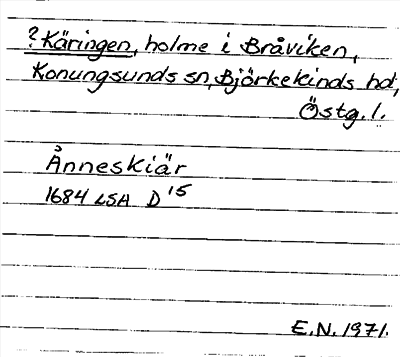 ? Käringen, holme i Bråviken,
Konungsunds sn, Björkekinds hd,
Östg. l.
Ånneskiär
1684 LSA D 15
E.N. 1971.